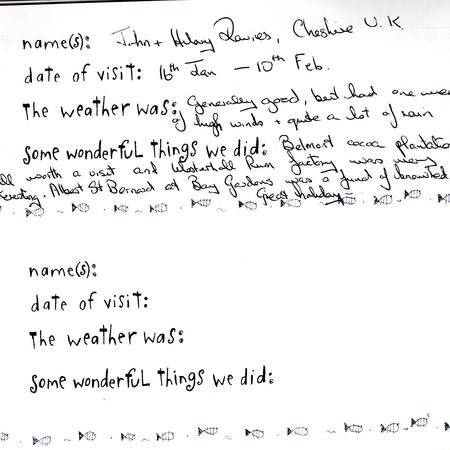 name(s): John + Hilary Davies, Cheshire U.K.
date of visit: 16th Jan — 10th Feb.
The weather was: Generally good, but had one
of high winds + quite a lot of rain
some wonderful things we did: Belmont cocoa
worth a visit and Westerhall Rum factory was very
Albert St Bernard at Bay Gardens was a fund of
Great holiday
name(s):
date of visit:
The weather was:
some wonderful things we did: